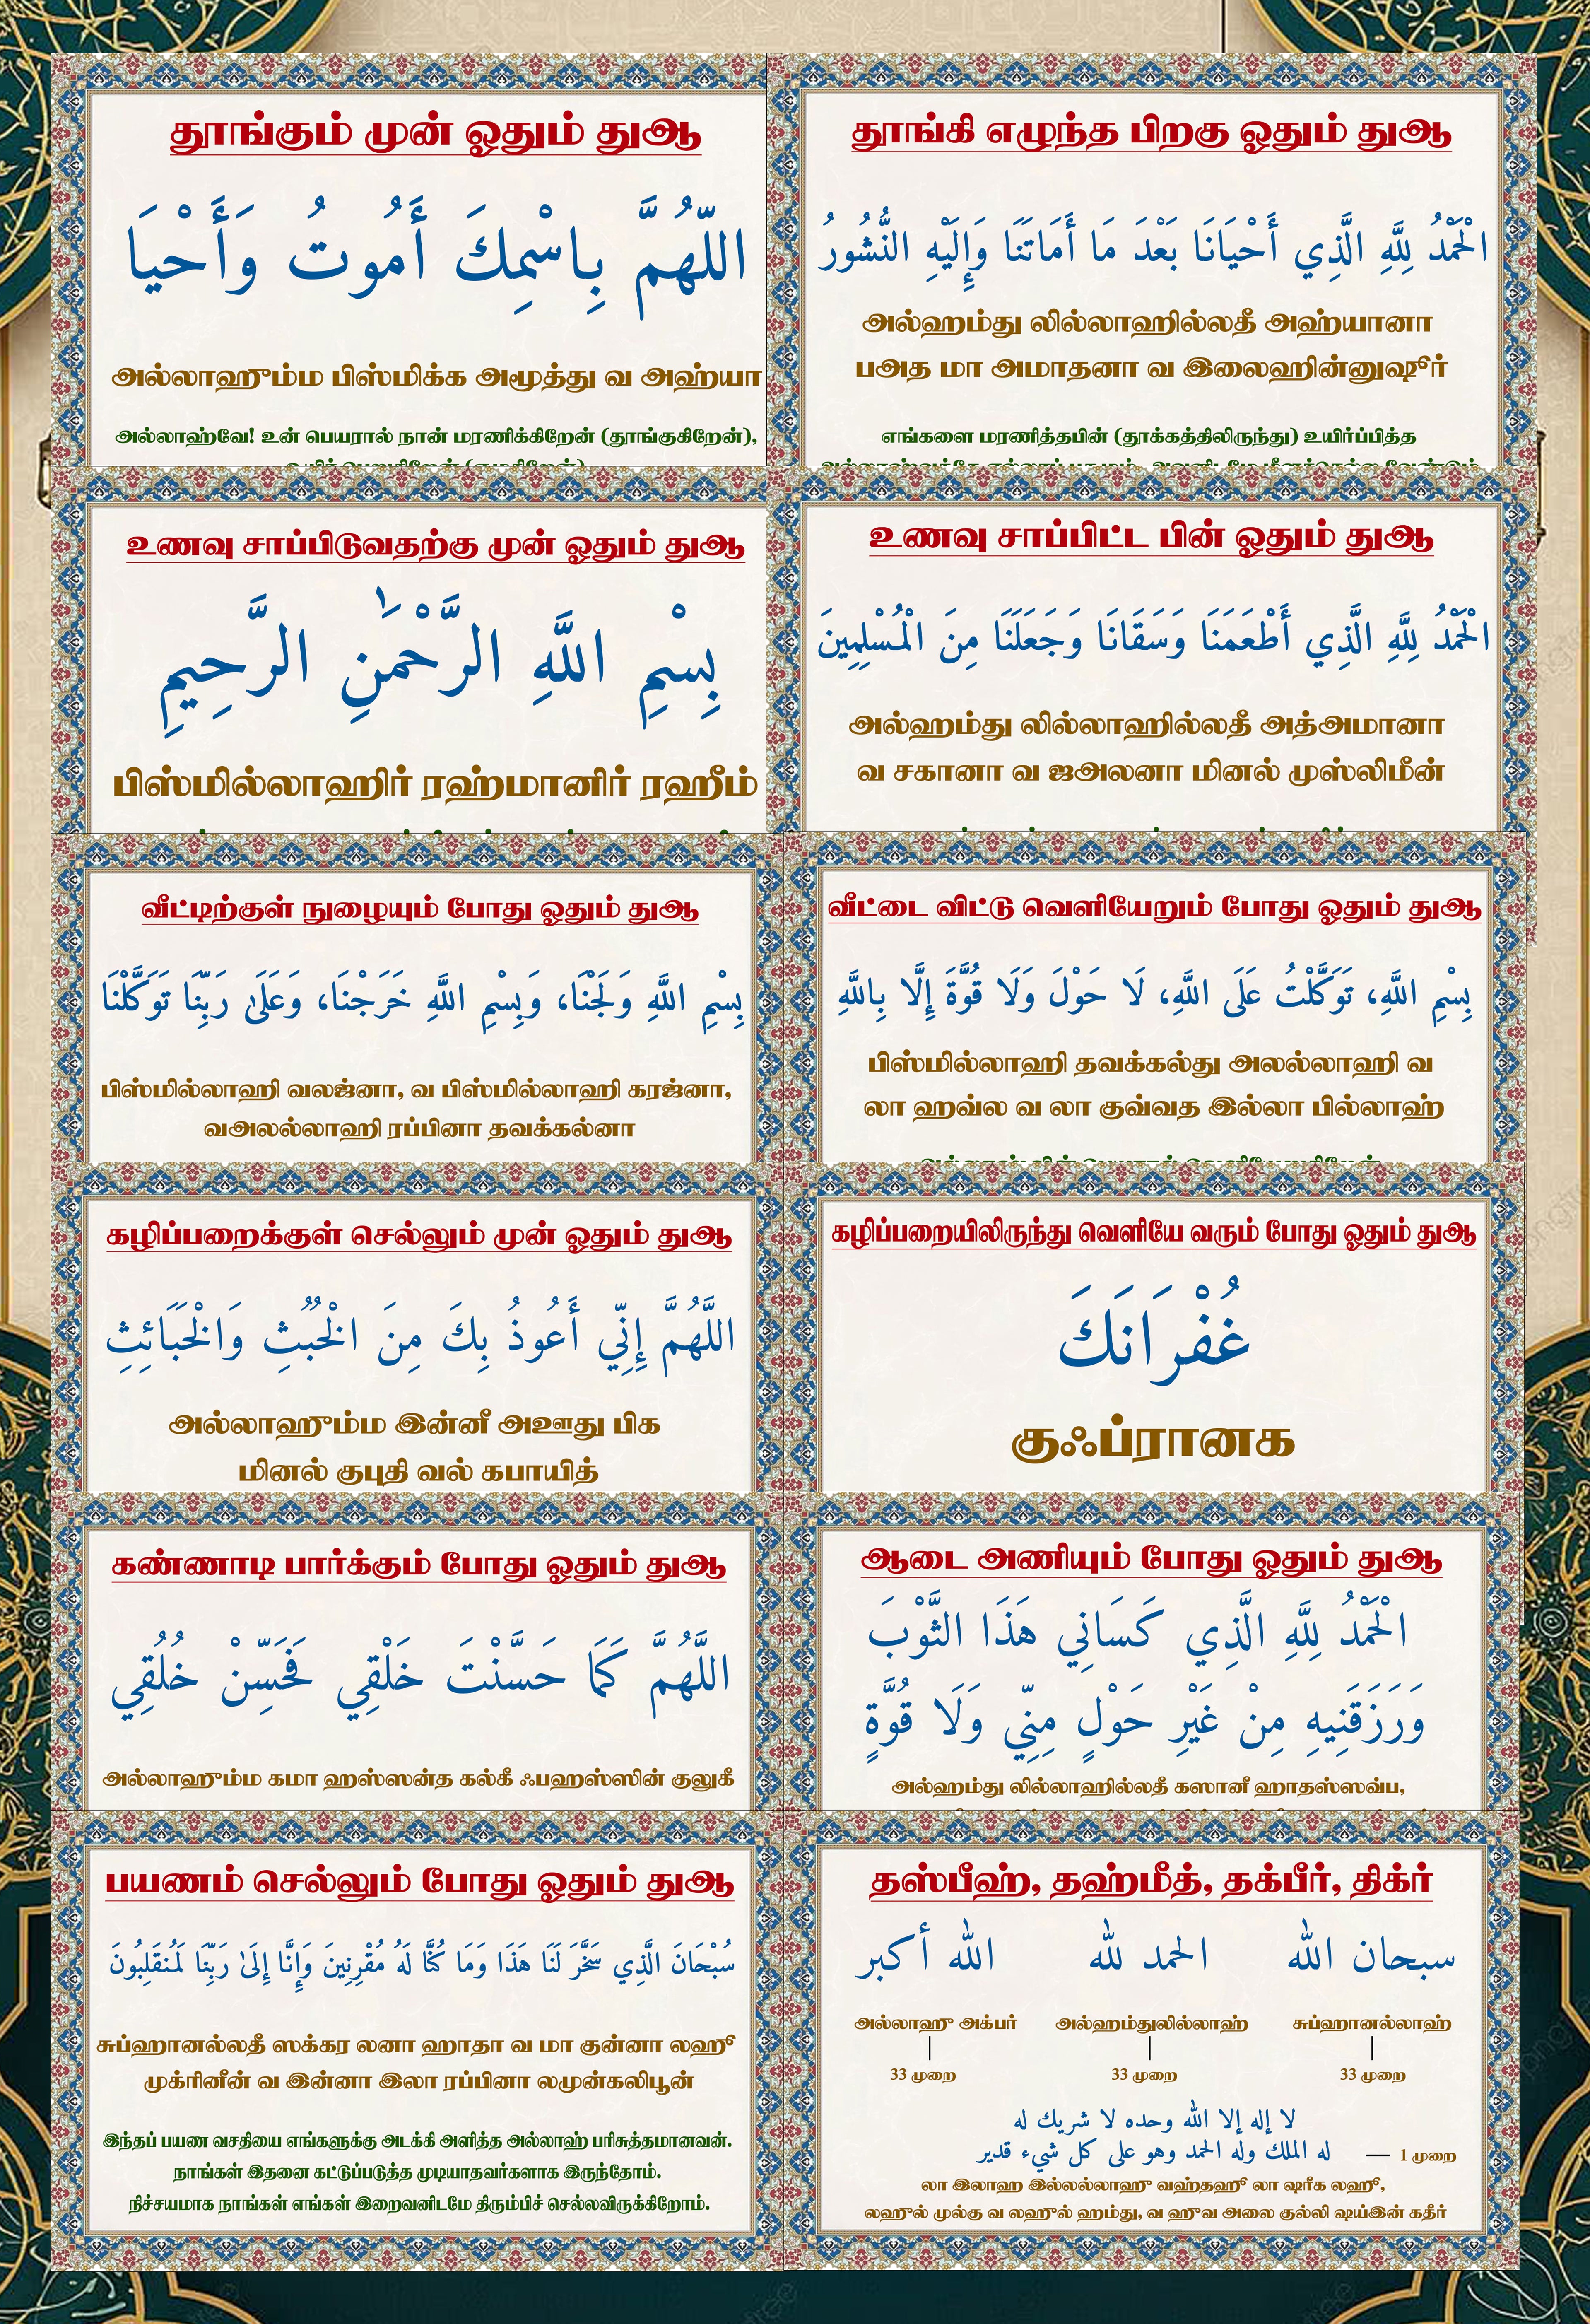 தூங்கும் முன் ஓதும் துஆ
اللّٰهُمَّ بِاسْمِكَ أَمُوتُ وَأَحْيَا
அல்லாஹும்ம பிஸ்மிக்க அமூத்து வ அஹ்யா
அல்லாஹ்வே! உன் பெயரால் நான் மரணிக்கிறேன் (தூங்குகிறேன்),
தூங்கி எழுந்த பிறகு ஓதும் துஆ
الْحَمْدُ لِلَّهِ الَّذِي أَحْيَانَا بَعْدَ مَا أَمَاتَنَا وَإِلَيْهِ النُّشُورُ
அல்ஹம்து லில்லாஹில்லதீ அஹ்யானா
பஅத மா அமாதனா வ இலைஹின்னுஷூர்
எங்களை மரணித்தபின் (தூக்கத்திலிருந்து) உயிர்ப்பித்த
உணவு சாப்பிடுவதற்கு முன் ஓதும் துஆ
بِسْمِ اللَّهِ الرَّحْمَٰنِ الرَّحِيمِ
பிஸ்மில்லாஹிர் ரஹ்மானிர் ரஹீம்
உணவு சாப்பிட்ட பின் ஓதும் துஆ
الْحَمْدُ لِلَّهِ الَّذِي أَطْعَمَنَا وَسَقَانَا وَجَعَلَنَا مِنَ الْمُسْلِمِينَ
அல்ஹம்து லில்லாஹில்லதீ அத்அமானா
வ சகானா வ ஜஅலனா மினல் முஸ்லிமீன்
வீட்டிற்குள் நுழையும் போது ஓதும் துஆ
بِسْمِ اللَّهِ وَلَجْنَا، وَبِسْمِ اللَّهِ خَرَجْنَا، وَعَلَىٰ رَبِّنَا تَوَكَّلْنَا
பிஸ்மில்லாஹி வலஜ்னா, வ பிஸ்மில்லாஹி கரஜ்னா,
வஅலல்லாஹி ரப்பினா தவக்கல்னா
வீட்டை விட்டு வெளியேறும் போது ஓதும் துஆ
بِسْمِ اللَّهِ، تَوَكَّلْتُ عَلَى اللَّهِ، لَا حَوْلَ وَلَا قُوَّةَ إِلَّا بِاللَّهِ
பிஸ்மில்லாஹி தவக்கல்து அலல்லாஹி வ
லா ஹவ்ல வ லா குவ்வத இல்லா பில்லாஹ்
கழிப்பறைக்குள் செல்லும் முன் ஓதும் துஆ
اللَّهُمَّ إِنِّي أَعُوذُ بِكَ مِنَ الْخُبُثِ وَالْخَبَائِثِ
அல்லாஹும்ம இன்னீ அஊது பிக
மினல் குபுதி வல் கபாயித்
கழிப்பறையிலிருந்து வெளியே வரும் போது ஓதும் துஆ
غُفْرَانَكَ
குஃப்ரானக
கண்ணாடி பார்க்கும் போது ஓதும் துஆ
اللَّهُمَّ كَمَا حَسَّنْتَ خَلْقِي فَحَسِّنْ خُلُقِي
அல்லாஹும்ம கமா ஹஸ்ஸன்த கல்கீ ஃபஹஸ்ஸின் குலுகீ
ஆடை அணியும் போது ஓதும் துஆ
الْحَمْدُ لِلَّهِ الَّذِي كَسَانِي هَذَا الثَّوْبَ
وَرَزَقَنِيهِ مِنْ غَيْرِ حَوْلٍ مِنِّي وَلَا قُوَّةٍ
அல்ஹம்து லில்லாஹில்லதீ கஸானீ ஹாதஸ்ஸவ்ப,
பயணம் செல்லும் போது ஓதும் துஆ
سُبْحَانَ الَّذِي سَخَّرَ لَنَا هَذَا وَمَا كُنَّا لَهُ مُقْرِنِينَ وَإِنَّا إِلَىٰ رَبِّنَا لَمُنقَلِبُونَ
சுப்ஹானல்லதீ ஸக்கர லனா ஹாதா வ மா குன்னா லஹூ
முக்ரினீன் வ இன்னா இலா ரப்பினா லமுன்கலிபூன்
இந்தப் பயண வசதியை எங்களுக்கு அடக்கி அளித்த அல்லாஹ் பரிசுத்தமானவன்.
நாங்கள் இதனை கட்டுப்படுத்த முடியாதவர்களாக இருந்தோம்.
நிச்சயமாக நாங்கள் எங்கள் இறைவனிடமே திரும்பிச் செல்லவிருக்கிறோம்.
தஸ்பீஹ், தஹ்மீத், தக்பீர், திக்ர்
سبحان الله الحمد لله الله أكبر
அல்லாஹு அக்பர் அல்ஹம்துலில்லாஹ் சுப்ஹானல்லாஹ்
33 முறை 33 முறை 33 முறை
لا إله إلا الله وحده لا شريك له
له الملك وله الحمد وهو على كل شيء قدير — 1 முறை
லா இலாஹ இல்லல்லாஹு வஹ்தஹூ லா ஷரீக லஹூ,
லஹுல் முல்கு வ லஹுல் ஹம்து, வ ஹுவ அலை குல்லி ஷய்இன் கதீர்